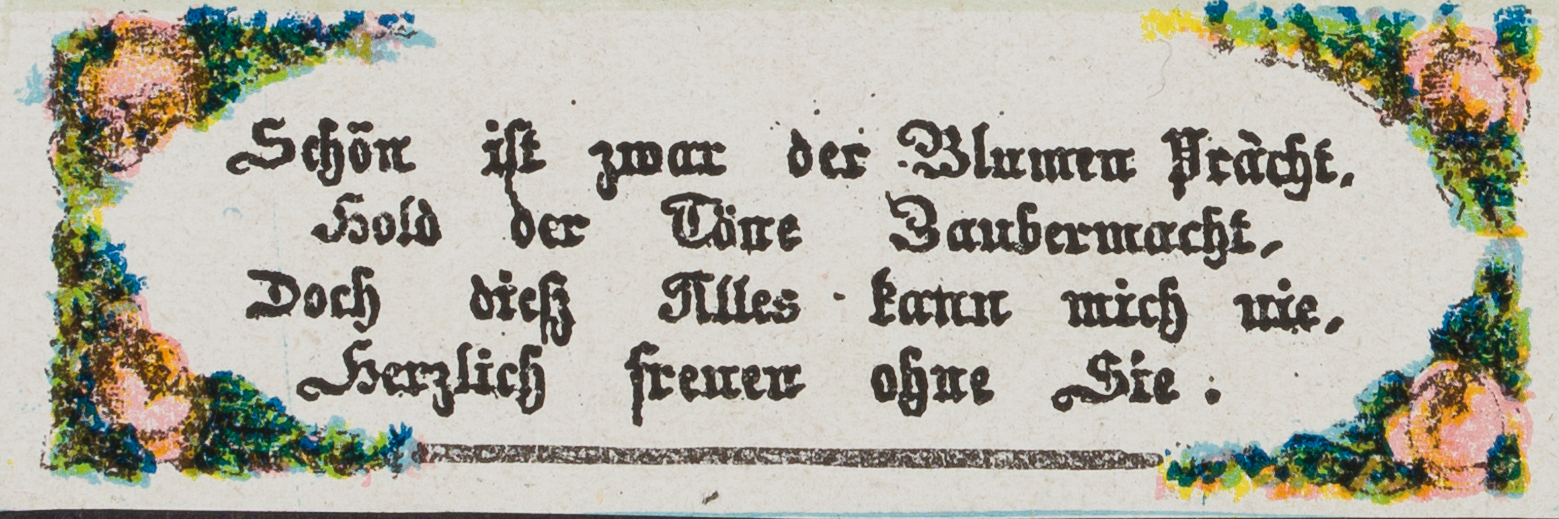 Schön ist zwar der Blumen Pracht,
Hold der Töne Zaubermacht,
Doch dieß Alles kann mich nie,
Herzlich freuen ohne Sie.